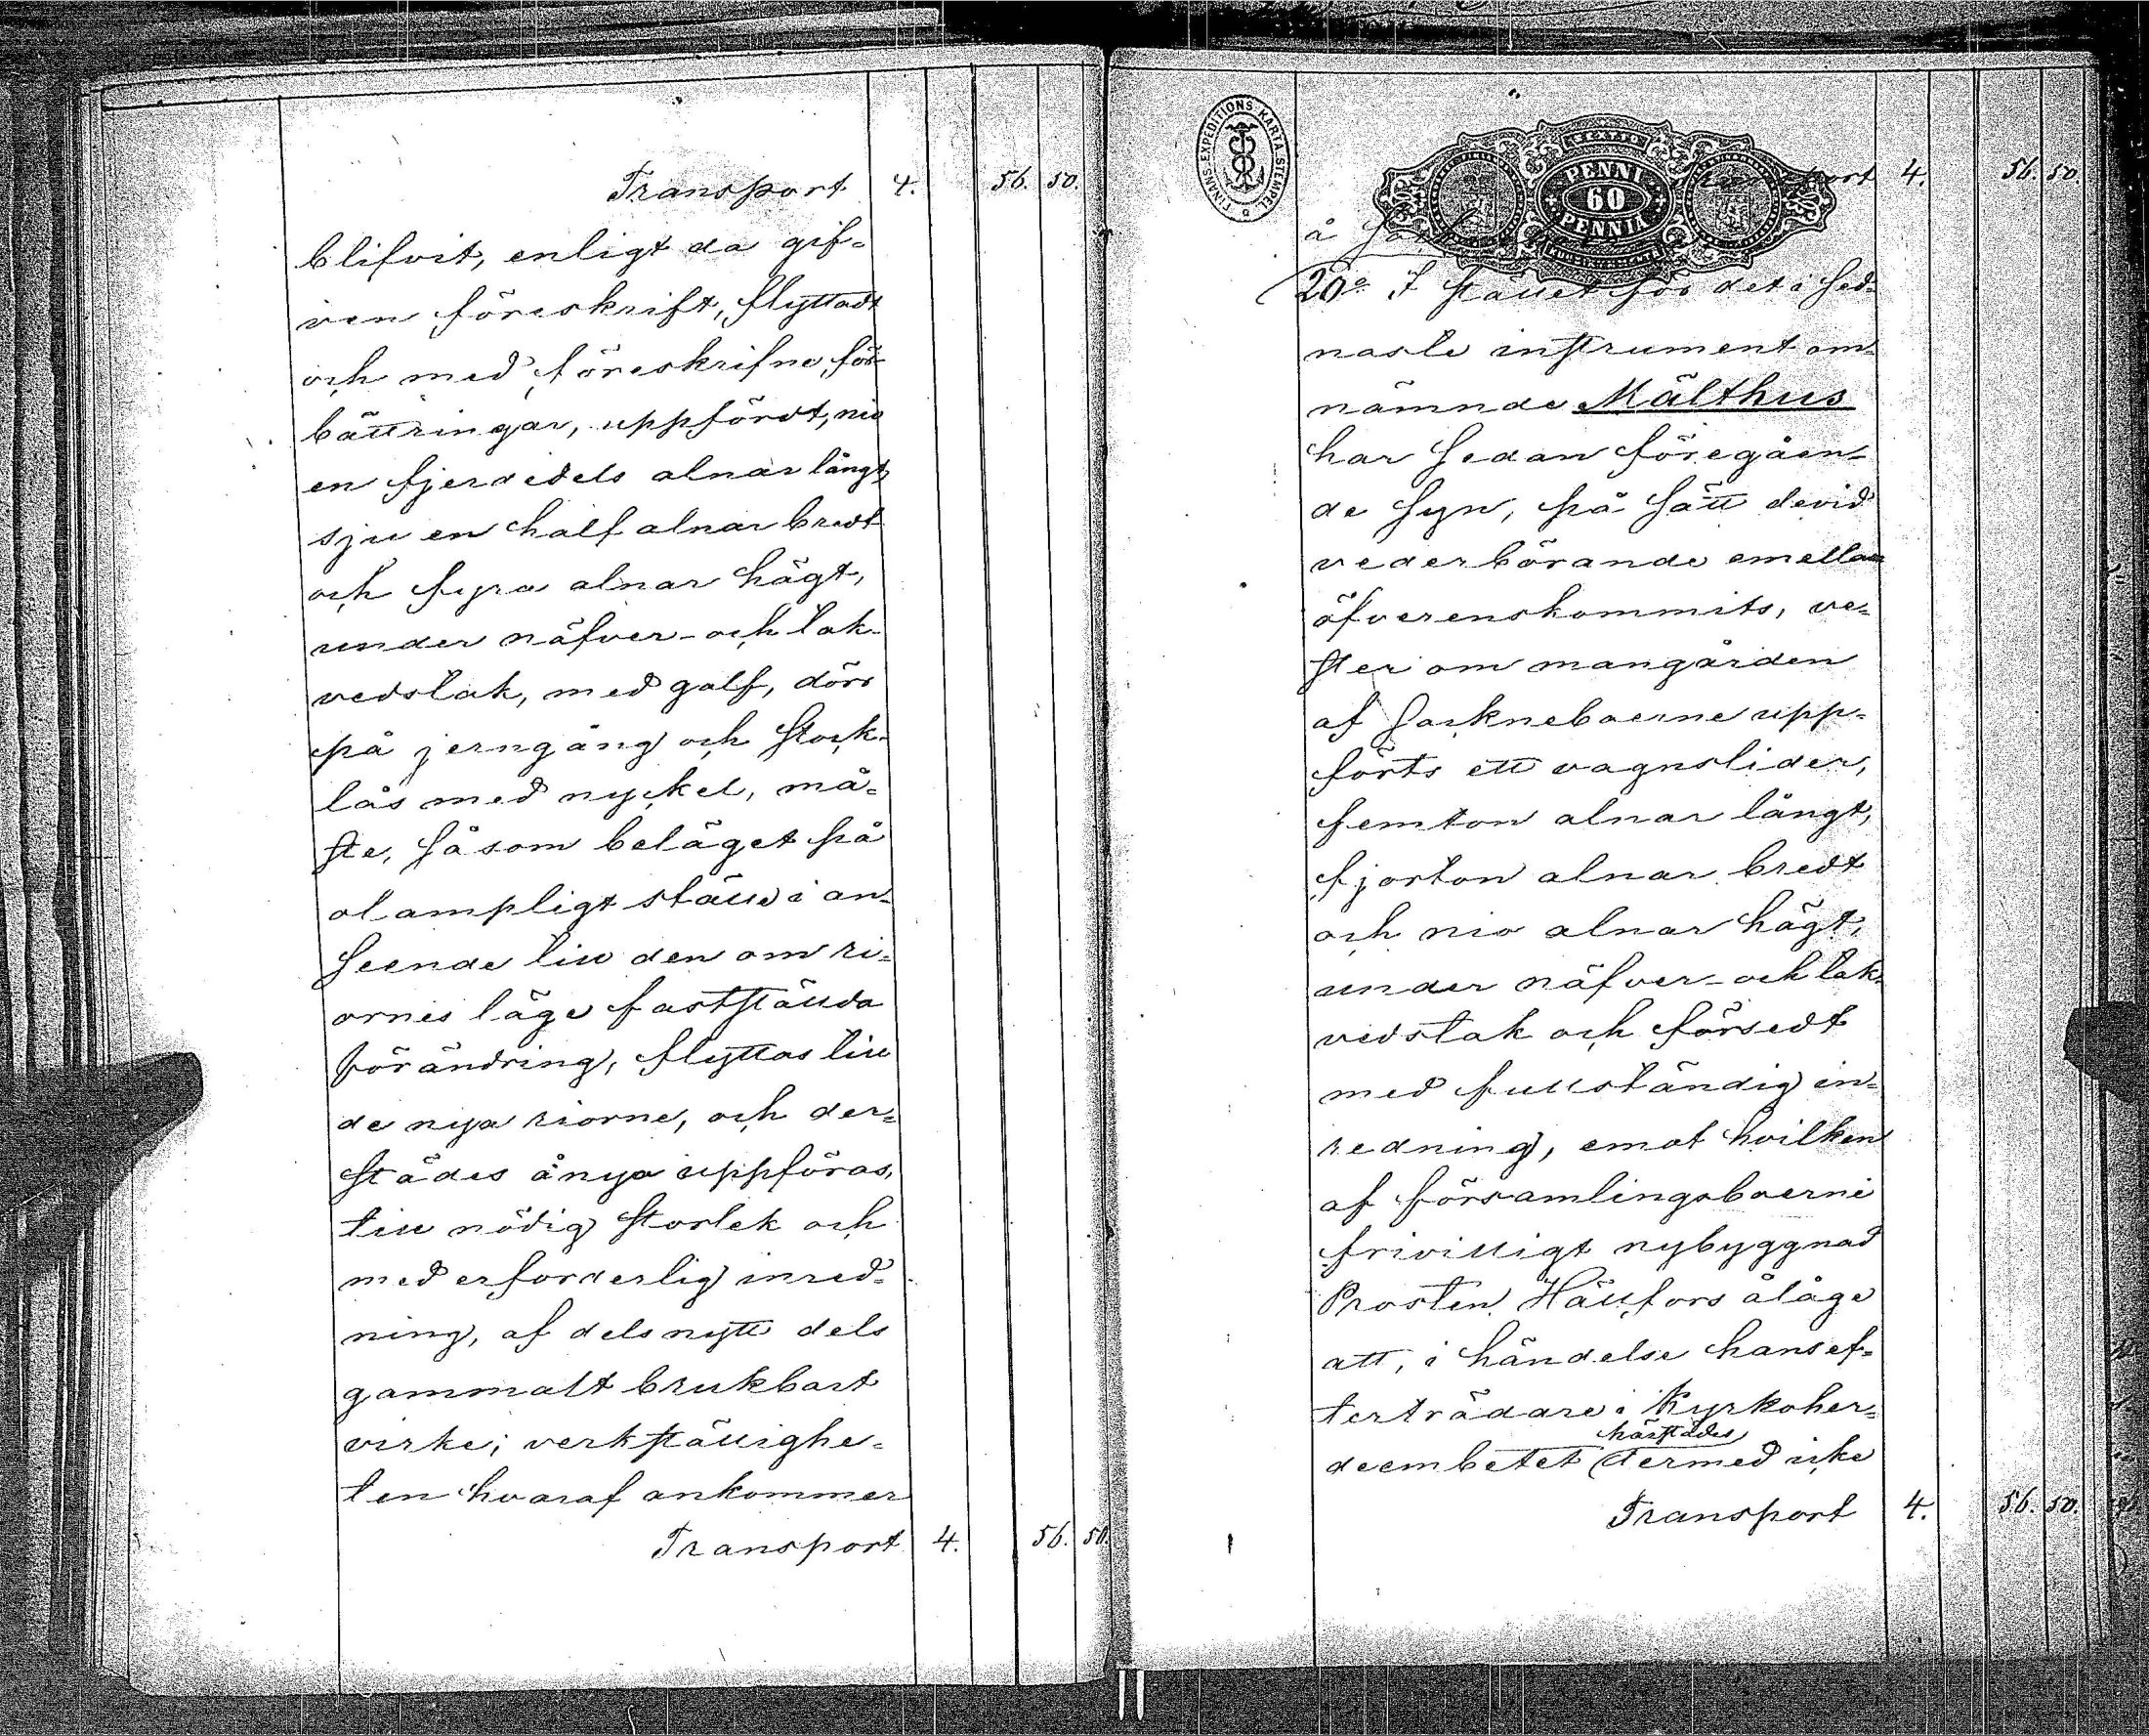 Transport 4. 56. 50.
blifvit, enligt da gif-
ven föreskrift, flyttadt
och med föreskrifne för-
bättringar, uppfördt, nio
en fjerdedels alnar långt,
sju en half alnar bredt
och fyra alnar högt,
under näfver- och tak-
vedstak, med golf, dörr
på jerngång och stock-
lås med nyckel, må-
ste, såsom beläget på
olämpligt ställe i an-
seende till den om ri-
ornes läge fastställda
förändring, flyttas till
de nya riorne, och der-
städes ånyo uppföras,
till nödig storlek och
med erforderlig inred-
ning, af dels nytt dels
gammalt brukbart
virke; verkställighe-
ten hvaraf ankommer
Transport 4. 56. 50.
FINANS-EXPEDITIONS KARTA-STEMPEL
PENNI
60
PENNIÄ
Transport 4. 56. 50.
å
20o I stället för det i sed-
naste instrument om-
nämnde Mälthus
har sedan föregåen-
de syn, på sätt devid
vederbörande emellan
öfverenskommits, ve-
ster om mangården
af Sockneboerne upp-
förts ett vagnslider,
femton alnar långt,
fjorton alnar bredt
och nio alnar högt,
under näfver- och tak-
vedstak och försedt
med fullständig in-
redning, emot hvilken
af församlingsboerne
frivilligt nybyggnad
Prosten Hällfors ålåge
att, i händelse hans ef-
terträdare i Kyrkoher-
härstädes
deembetet dermed icke
Transport 4. 56. 50.